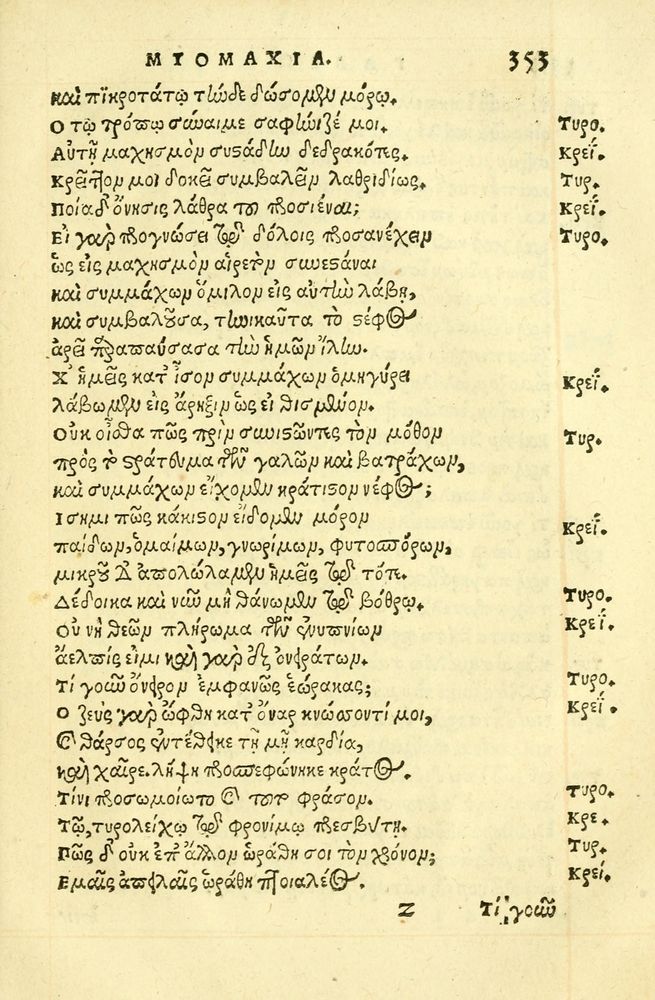 ΜΥΟΜΑΧΙΑ. 353
καὶ πικροτάτῳ τῷδε δώσομεν μόρῳ.
Ο τῷ τρόπῳ σύναιμε σαφώνιζέ μοι. Τυρο.
Αὐτῇ μαχησμὸν συστάδην δεδρακότες. Κρεΐ.
Κρεῖττον μοι δοκεῖ συμβαλεῖν λαθριδίως. Τυρ.
Ποία δ' ὄνησις λάθρα του προσιέναι; Κρεΐ.
Εἰ γὰρ προγνώσει τοῖς δόλοις προσανέχειν Τυρο.
ὡς εἰς μαχησμὸν αἱρετὸν συνεστάναι
καὶ συμμάχων ὅμιλον εἰς αὐτὴν λάβῃ,
καὶ συμβαλοῦσα, τηνικαῦτα τὸ στέφος
ἀρεῖ πραπαύσασα τὴν ἡμῶν ἴλην.
Χ' ἡμεῖς κατ' ἶσον συμμάχων ὁμηγύρει Κρεΐ.
λάβωμεν εἰς ἄρηξιν ὡς εἰθισμένον.
Οὐκ οἶσθα πῶς πρὶν συνιστῶντες τὸν μόθον Τυρ.
πρὸς τὸ στράτευμα τῶν γαλῶν καὶ βατράχων,
καὶ συμμάχων εἴχομεν κράτιστον νέφος;
Ισημι πῶς κάκιστον εἴδομεν μόρον Κρεΐ.
παίδων, ὁμαίμων, γνωρίμων, φυτοσπόρων,
μικροῦ δ' ἀπολώλαμεν ἡμεῖς τοῖς τότε.
Δέδοικα καὶ νῦν μὴ θάνωμεν τῷ βόθρῳ. Τυρο.
Οὐ νὴ θεῶν πλήρωμα τῶν ἐνυπνίων Κρεΐ.
ἄελπίς εἰμι καὶ γὰρ ἐξ ὀνειράτων.
Τί γοῦν ὄνειρον ἐμφανῶς ἑώρακας; Τυρο.
Ο ζεὺς γὰρ ὤφθη κατ' ὄναρ κνώσσοντί μοι, Κρεΐ.
καὶ θάρσος ἐντέθεικε τῇ μῇ καρδία,
καὶ χαῖρε. λῆψῃ προσπεφώνηκε κράτος.
Τίνι προσωμοίωτο καὶ τοῦτο φράσον. Τυρο.
Τῷ, τυρολείχῳ τῷ φρονίμῳ πρεσβύτῃ. Κρε.
Πῶς δ' οὐκ ἐπ' ἄλλον ὡράθη σοι τὸν χρόνον; Τυρ.
Εμαῖς ἀπειλαῖς ὡράθη πτοιαλέος. Κρεί.
Z Τί γοῦν